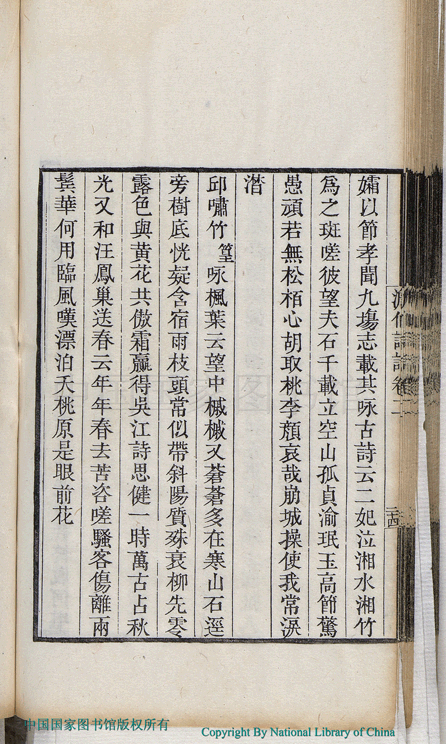 孀以節孝聞九塲志載其咏古詩云二妃泣湘水湘竹
爲之斑嗟彼望夫石千載立空山孤貞渝珉玉高節驚
愚頑若無松栢心胡取桃李顏哀哉崩城操使我常淚
潸
邱嘯竹篁咏楓葉云望中槭槭又蒼蒼多在寒山石逕
旁樹底恍疑含宿雨枝頭常似帶斜陽質殊衰柳先零
露色與黃花共傲霜贏得吳江詩思健一時萬古占秋
光又和汪鳳巢送春云年年春去苦咨嗟騷客傷離兩
鬓華何用臨風嘆漂泊夭桃原是眼前花
詩話卷二
二十四
中国国家图书馆版权所有
Copyright By National Library of China